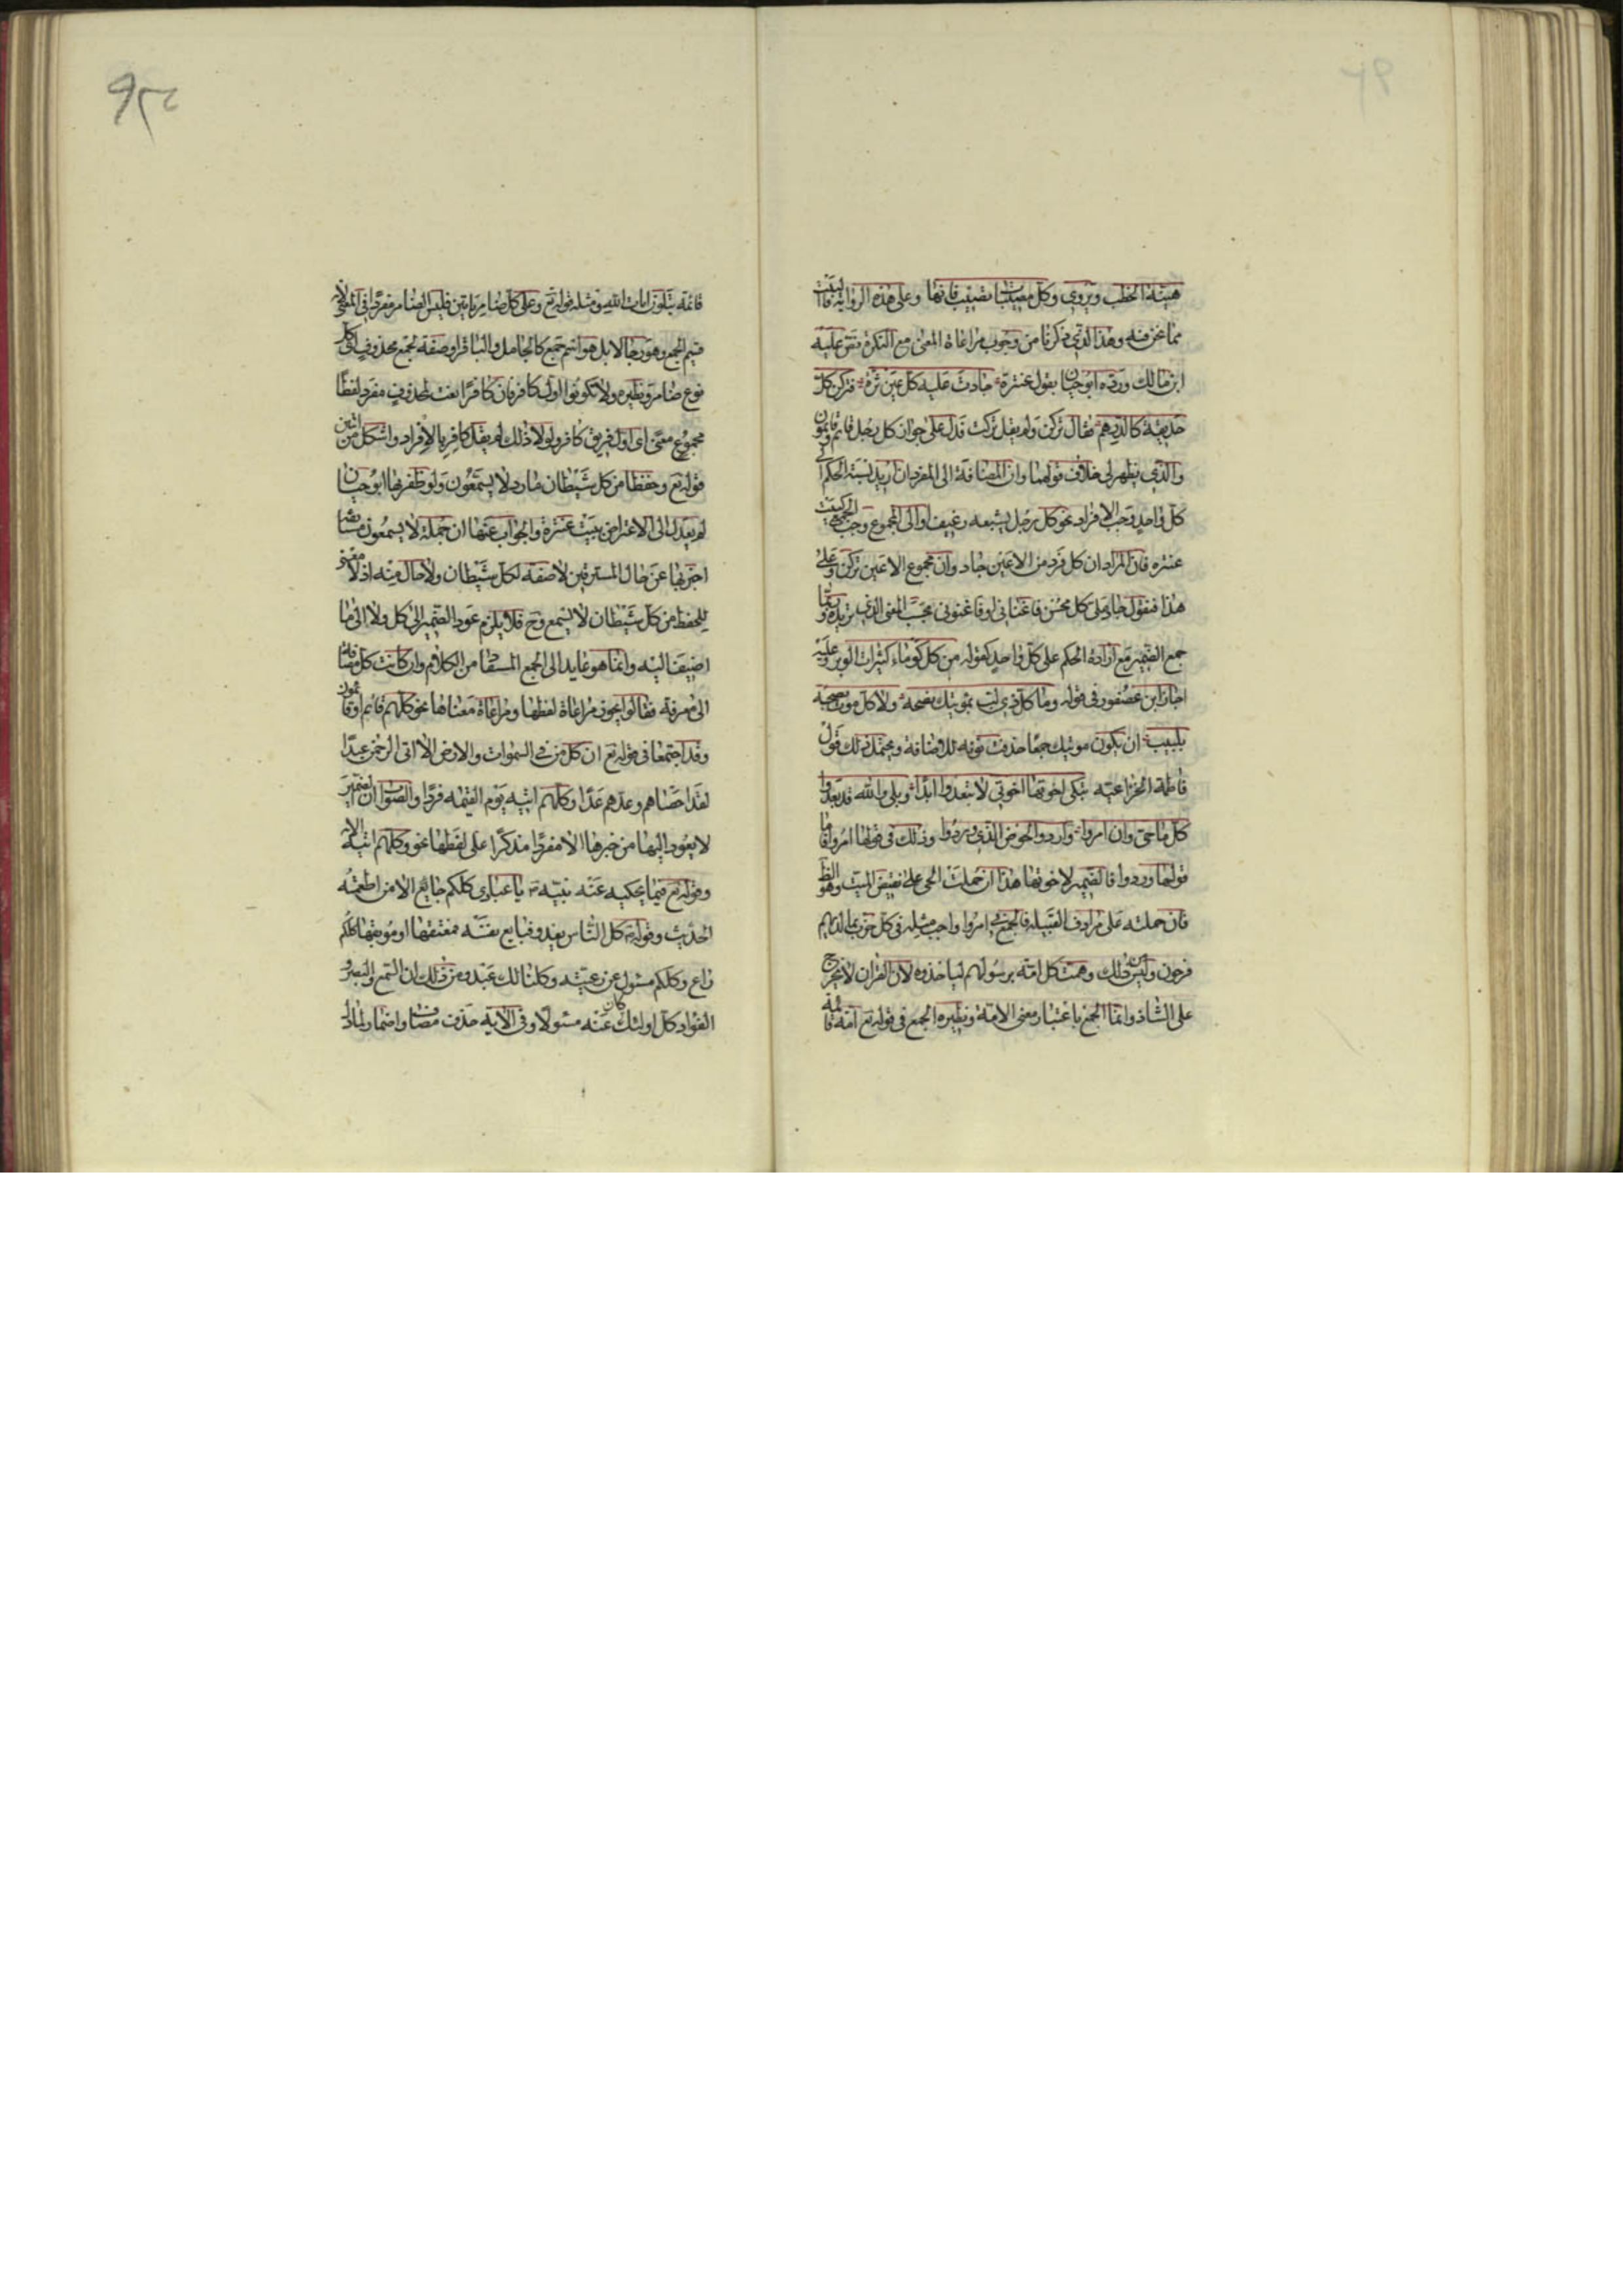 هينة الخطب ويروى وكل مصيبات تصيب فانها وعلى هذه الرواية فالبيت
مما نحن فيه وهذا الذي ذكرنا من وجوب مراعاة المعنى مع النكرة نص عليه
ابن مالك ورده ابو حيان بقول عنترة جادت عليه كل عين ثرة فتركن كل
حديقة كالدرهم فقال تركن ولم يقل تركت فدل على جواز كل رجل قائم وقائمون
والذي يظهر لي خلاف قولهما وان المضافة الى المفرد ان اريد نسبة الحكم الى
كل واحد وجب الافراد نحو كل رجل يشبعه رغيف او الى المجموع وجب الجمع كبيت
عنتره فان المراد ان كل فرد من الاعين جاد وان مجموع الاعين تركن وعلى
هذا فتقول جاد على كل محسن فاغناني او فاغنوني بحسب المعنى الذي تريده وربما
جمع الضمير مع ارادة الحكم على كل واحد كقوله من كل كوماء كثيرات الوبر وعليه
اجاز ابن عصفور في قوله وما كل ذي لب بمؤتيك نصحه ولا كل مؤت نصحه
بلبيب ان يكون مؤتيك جمعا حذفت نونه للاضافة ويحتمل ذلك قول
فاطمة الخزاعيه تبكي اخوتها اخوتي لا تبعدوا ابدا وبلى والله قد بعدوا
كل ما حي وان امروا وارد والحوض الذي وردوا وذلك في قولها امروا فاما
قولها وردوا فالضمير لاخوتها هذا ان حملت الحي على نقيض الميت وهو الظ
فان حملته على مرادف القبيله فالجمع في امروا واجب مثله في كل حزب بما لديهم
فرحون وليس من ذلك وهمت كل امة برسولهم لياخذوه لان القران لا يخرج
على الشاذ وانما الجمع باعتبار معنى الامة ونظيره الجمع في قوله تع امة قائمة
قائمة يتلون ايات الله ومثله قوله تع وعلى كل ضامر ياتين فليس الضامر مفردا في المعنى لانه
قسيم الجمع وهو رجالا بل هو اسم جمع كالجامل والباقر او صفة لجمع محذوف اي كل
نوع ضامر ونظيره ولا تكونوا اول كافر فان كافرا نعت لمحذوف مفرد لفظا
مجموع معنى اي اول فريق كافر ولولا ذلك لم يقل كافر بالافراد واشكل من ايتين
قوله تع وحفظا من كل شيطان مارد لا يسمعون ولو ظفر بها ابو حيان
لم يعدل الى الاعتراض ببيت عنترة والجواب عنها ان جملة لا يسمعون مستانفة
اخبر بها عن حال المسترقين لا صفة لكل شيطان ولا حال منه اذ لا معنى
للحفظ من كل شيطان لا يسمع وح فلا يلزم عود الضمير الى كل ولا الى ما
اضيفت اليه وانما هو عايد الى الجمع المستفاد من الكلام وان كانت كل مضافة
الى معرفة فقالوا يجوز مراعاة لفظها ومراعاة معناها نحو كلهم قائم او قائمون
وقد اجتمعا في قوله تع ان كل من في السموات والارض الا اتى الرحمن عبدا
لقد احصاهم وعدهم عدا وكلهم اتيه يوم القيمه فردا والصواب ان الضمير
لا يعود اليها من خبرها الا مفردا مذكرا على لفظها نحو وكلهم اتيه الاية
وقوله تع فيما يحكيه عنه نبيه ص يا عبادي كلكم جايع الا من اطعمته
الحديث وقوله ص كل الناس يغدو فبايع نفسه فمعتقها او موبقها كلكم
راع وكلكم مسئول عن رعيته وكلنا لك عبد ومن ذلك ان السمع والبصر و
الفواد كل اولئك كان عنه مسئولا وفي الاية حذف مضاف واضمار لما دل